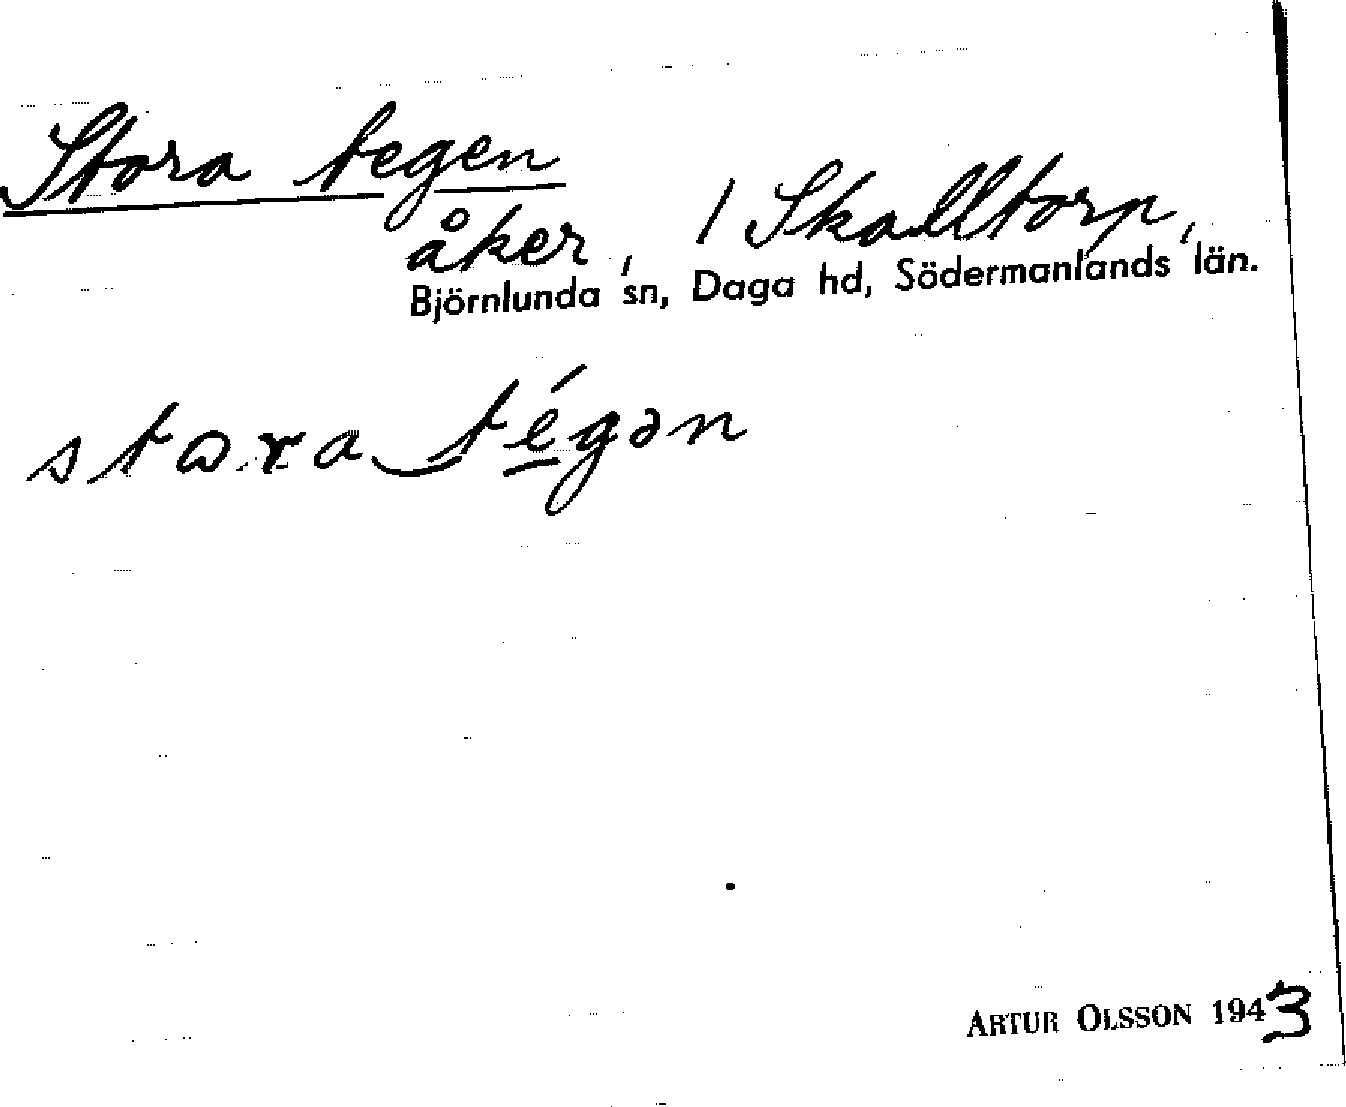 Stora tegen
åker, / Skalltorp,
Björnlunda sn, Daga hd, Södermanlands län.
stωra‿tégən
ARTUR OLSSON 1943